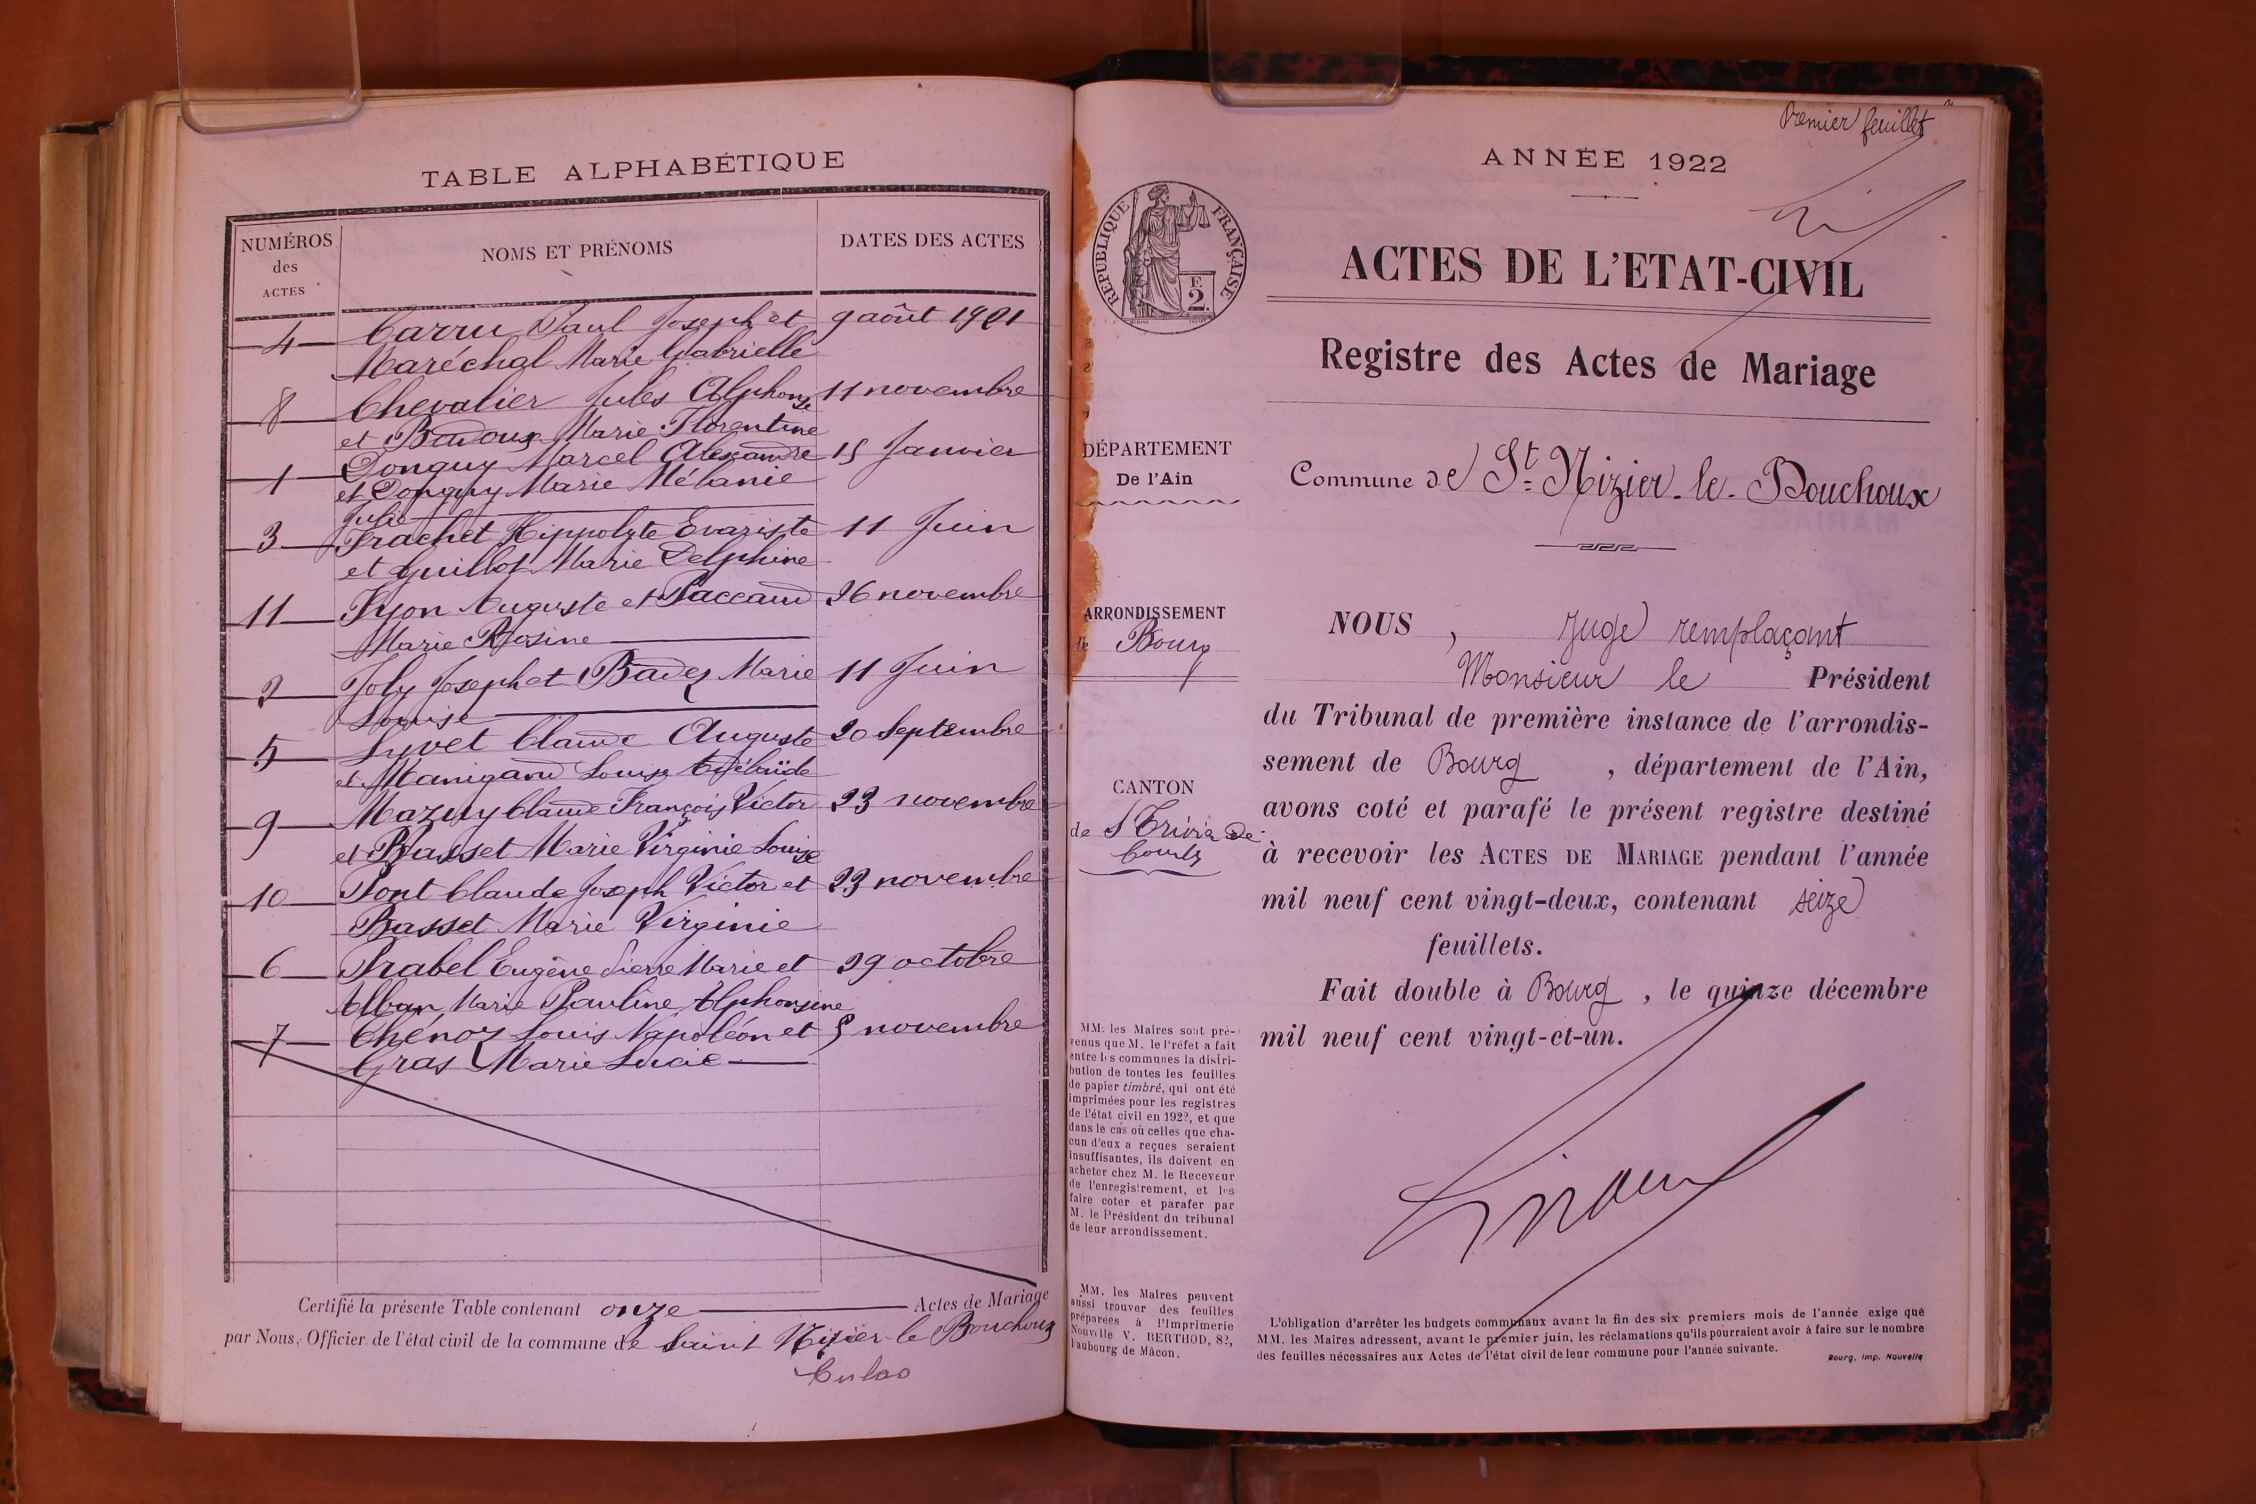 TABLE ALPHABÉTIQUE
NUMÉROS
des
ACTES
NOMS ET PRÉNOMS
DATES DES ACTES
4 Carru Paul Joseph et 9 août 1921
Maréchal Marie Gabrielle
8 Chevalier Jules Alphonse 11 novembre
et Badoux Marie Florentine
1 Donguy Marcel Alexandre 15 Janvier
et Donguy Marie Mélanie
Julie
3 Frachet Hippolyte Evariste 11 Juin
et Guillot Marie Delphine
11 Fyon Auguste et Paccaud 26 novembre
Marie Rosine
2 Joly Joseph et Badez Marie 11 Juin
Louise
5 Lyvet Claude Auguste 20 Septembre
et Manigand Louise Adélaïde
9 Mazuy Claude François Victor 23 novembre
et Basset Marie Virginie Louise
10 Pont Claude Joseph Victor et 23 novembre
Basset Marie Virginie
6 Prabel Eugène Pierre Marie et 29 octobre
Alban Marie Pauline Alphonsine
7 Chénoz Louis Napoléon et 5 novembre
Gras Marie Lucie
Certifié la présente Table contenant onze Actes de Mariage
par Nous, Officier de l'état civil de la commune de Saint Nizier le Bouchoux
Premier feuillet
ANNÉE 1922
RÉPUBLIQUE FRANÇAISE
E
2.
ACTES DE L'ETAT-CIVIL
Registre des Actes de Mariage
DÉPARTEMENT
De l'Ain
Commune de St-Nizier-le-Bouchoux
ARRONDISSEMENT
de Bourg
CANTON
de St Trivier de
Courtes
MM. les Maires sont pré-
venus que M. le Préfet a fait
entre les communes la distri-
bution de toutes les feuilles
de papier timbré, qui ont été
imprimées pour les registres
de l'état civil en 1922, et que
dans le cas où celles que cha-
cun d'eux a reçues seraient
insuffisantes, ils doivent en
acheter chez M. le Receveur
de l'enregistrement, et les
faire coter et parafer par
M. le Président du tribunal
de leur arrondissement.
MM. les Maires peuvent
aussi trouver des feuilles
préparées à l'Imprimerie
Nouvelle V. BERTHOD, 82,
faubourg de Mâcon.
NOUS, Juge remplaçant
Monsieur le Président
du Tribunal de première instance de l'arrondis-
sement de Bourg, département de l'Ain,
avons coté et parafé le présent registre destiné
à recevoir les ACTES DE MARIAGE pendant l'année
mil neuf cent vingt-deux, contenant seize
feuillets.
Fait double à Bourg, le quinze décembre
mil neuf cent vingt-et-un.
L'obligation d'arrêter les budgets communaux avant la fin des six premiers mois de l'année exige que
MM. les Maires adressent, avant le premier juin, les réclamations qu'ils pourraient avoir à faire sur le nombre
des feuilles nécessaires aux Actes de l'état civil de leur commune pour l'année suivante.
Bourg, Imp. Nouvelle